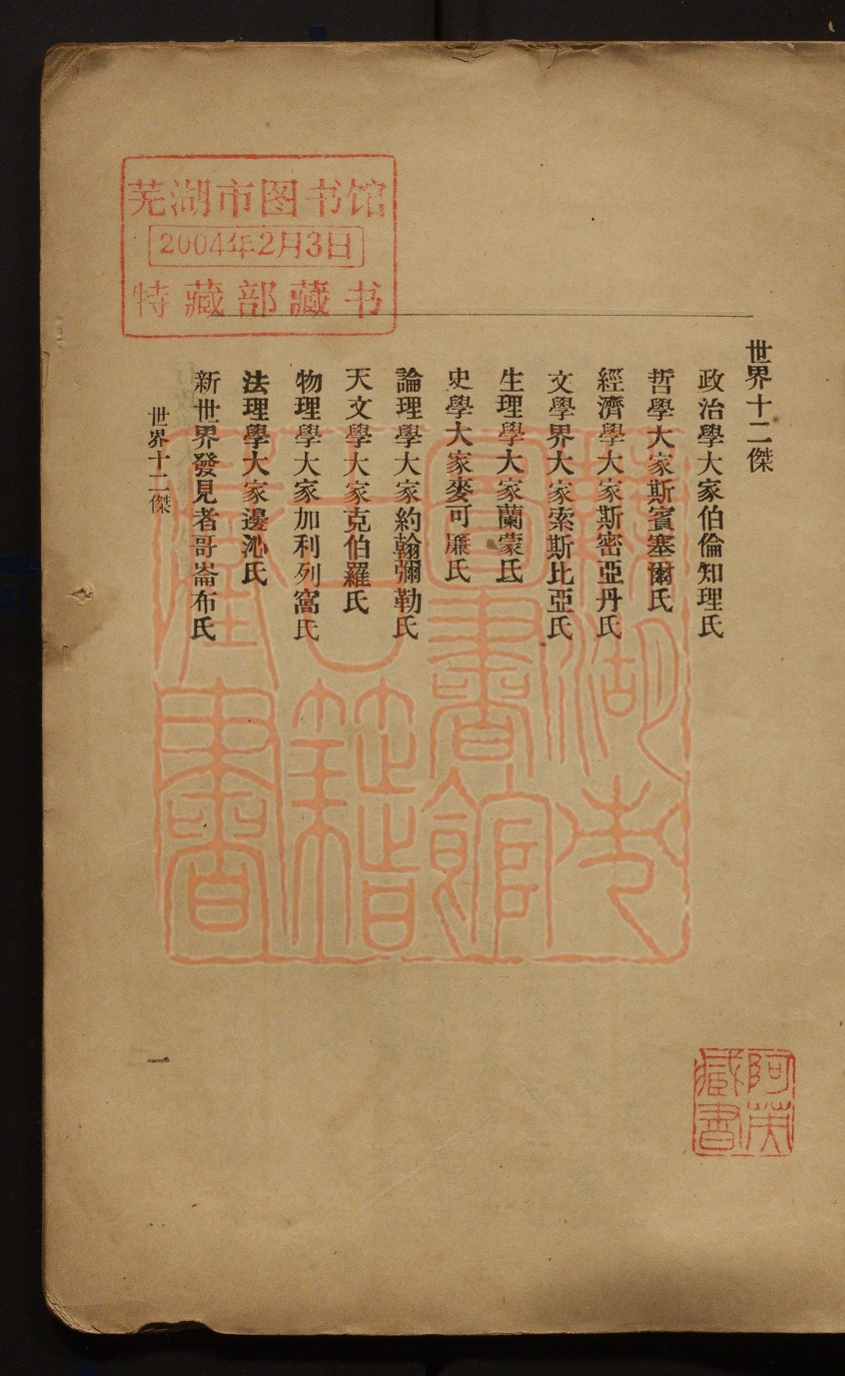 世界十二傑
政治學大家伯倫知理氏
哲學大家斯賓塞爾氏
經濟學大家斯密亞丹氏
文學界大家索斯比亞氏
生理學大家蘭蒙氏
史學大家麥可廉氏
論理學大家約翰彌勒氏
天文學大家克伯羅氏
物理學大家加利列窩氏
法理學大家邊沁氏
新世界發見者哥崙布氏
世界十二傑
一
芜湖市图书馆
2004年2月3日
特藏部藏书
蕪湖市
圖書館
古籍
藏書
阿英
藏書